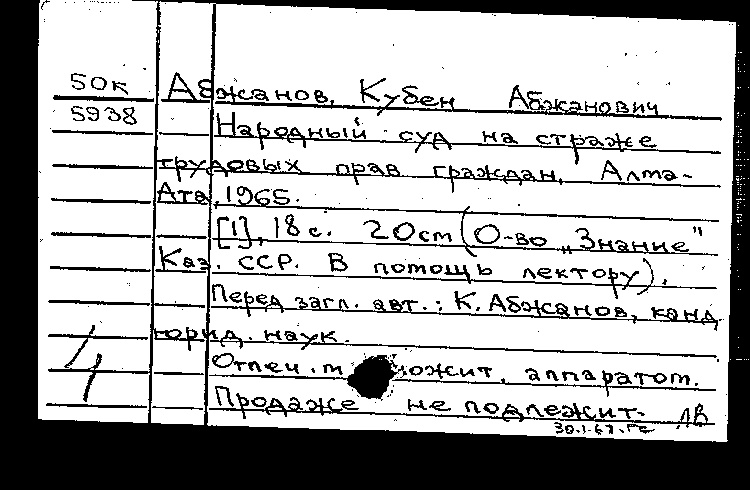 50к
5938
Абжанов, Кубен Абжанович
Народный суд на страже
трудовых прав граждан, Алма-
Ата, 1965.
[1], 18 с. 20 см (О-во „Знание"
Каз. ССР. В помощь лектору).
Перед загл. авт.: К. Абжанов, канд
юрид. наук.
Отпеч. аппаратом.
Продаже не подлежит. ЛВ
4